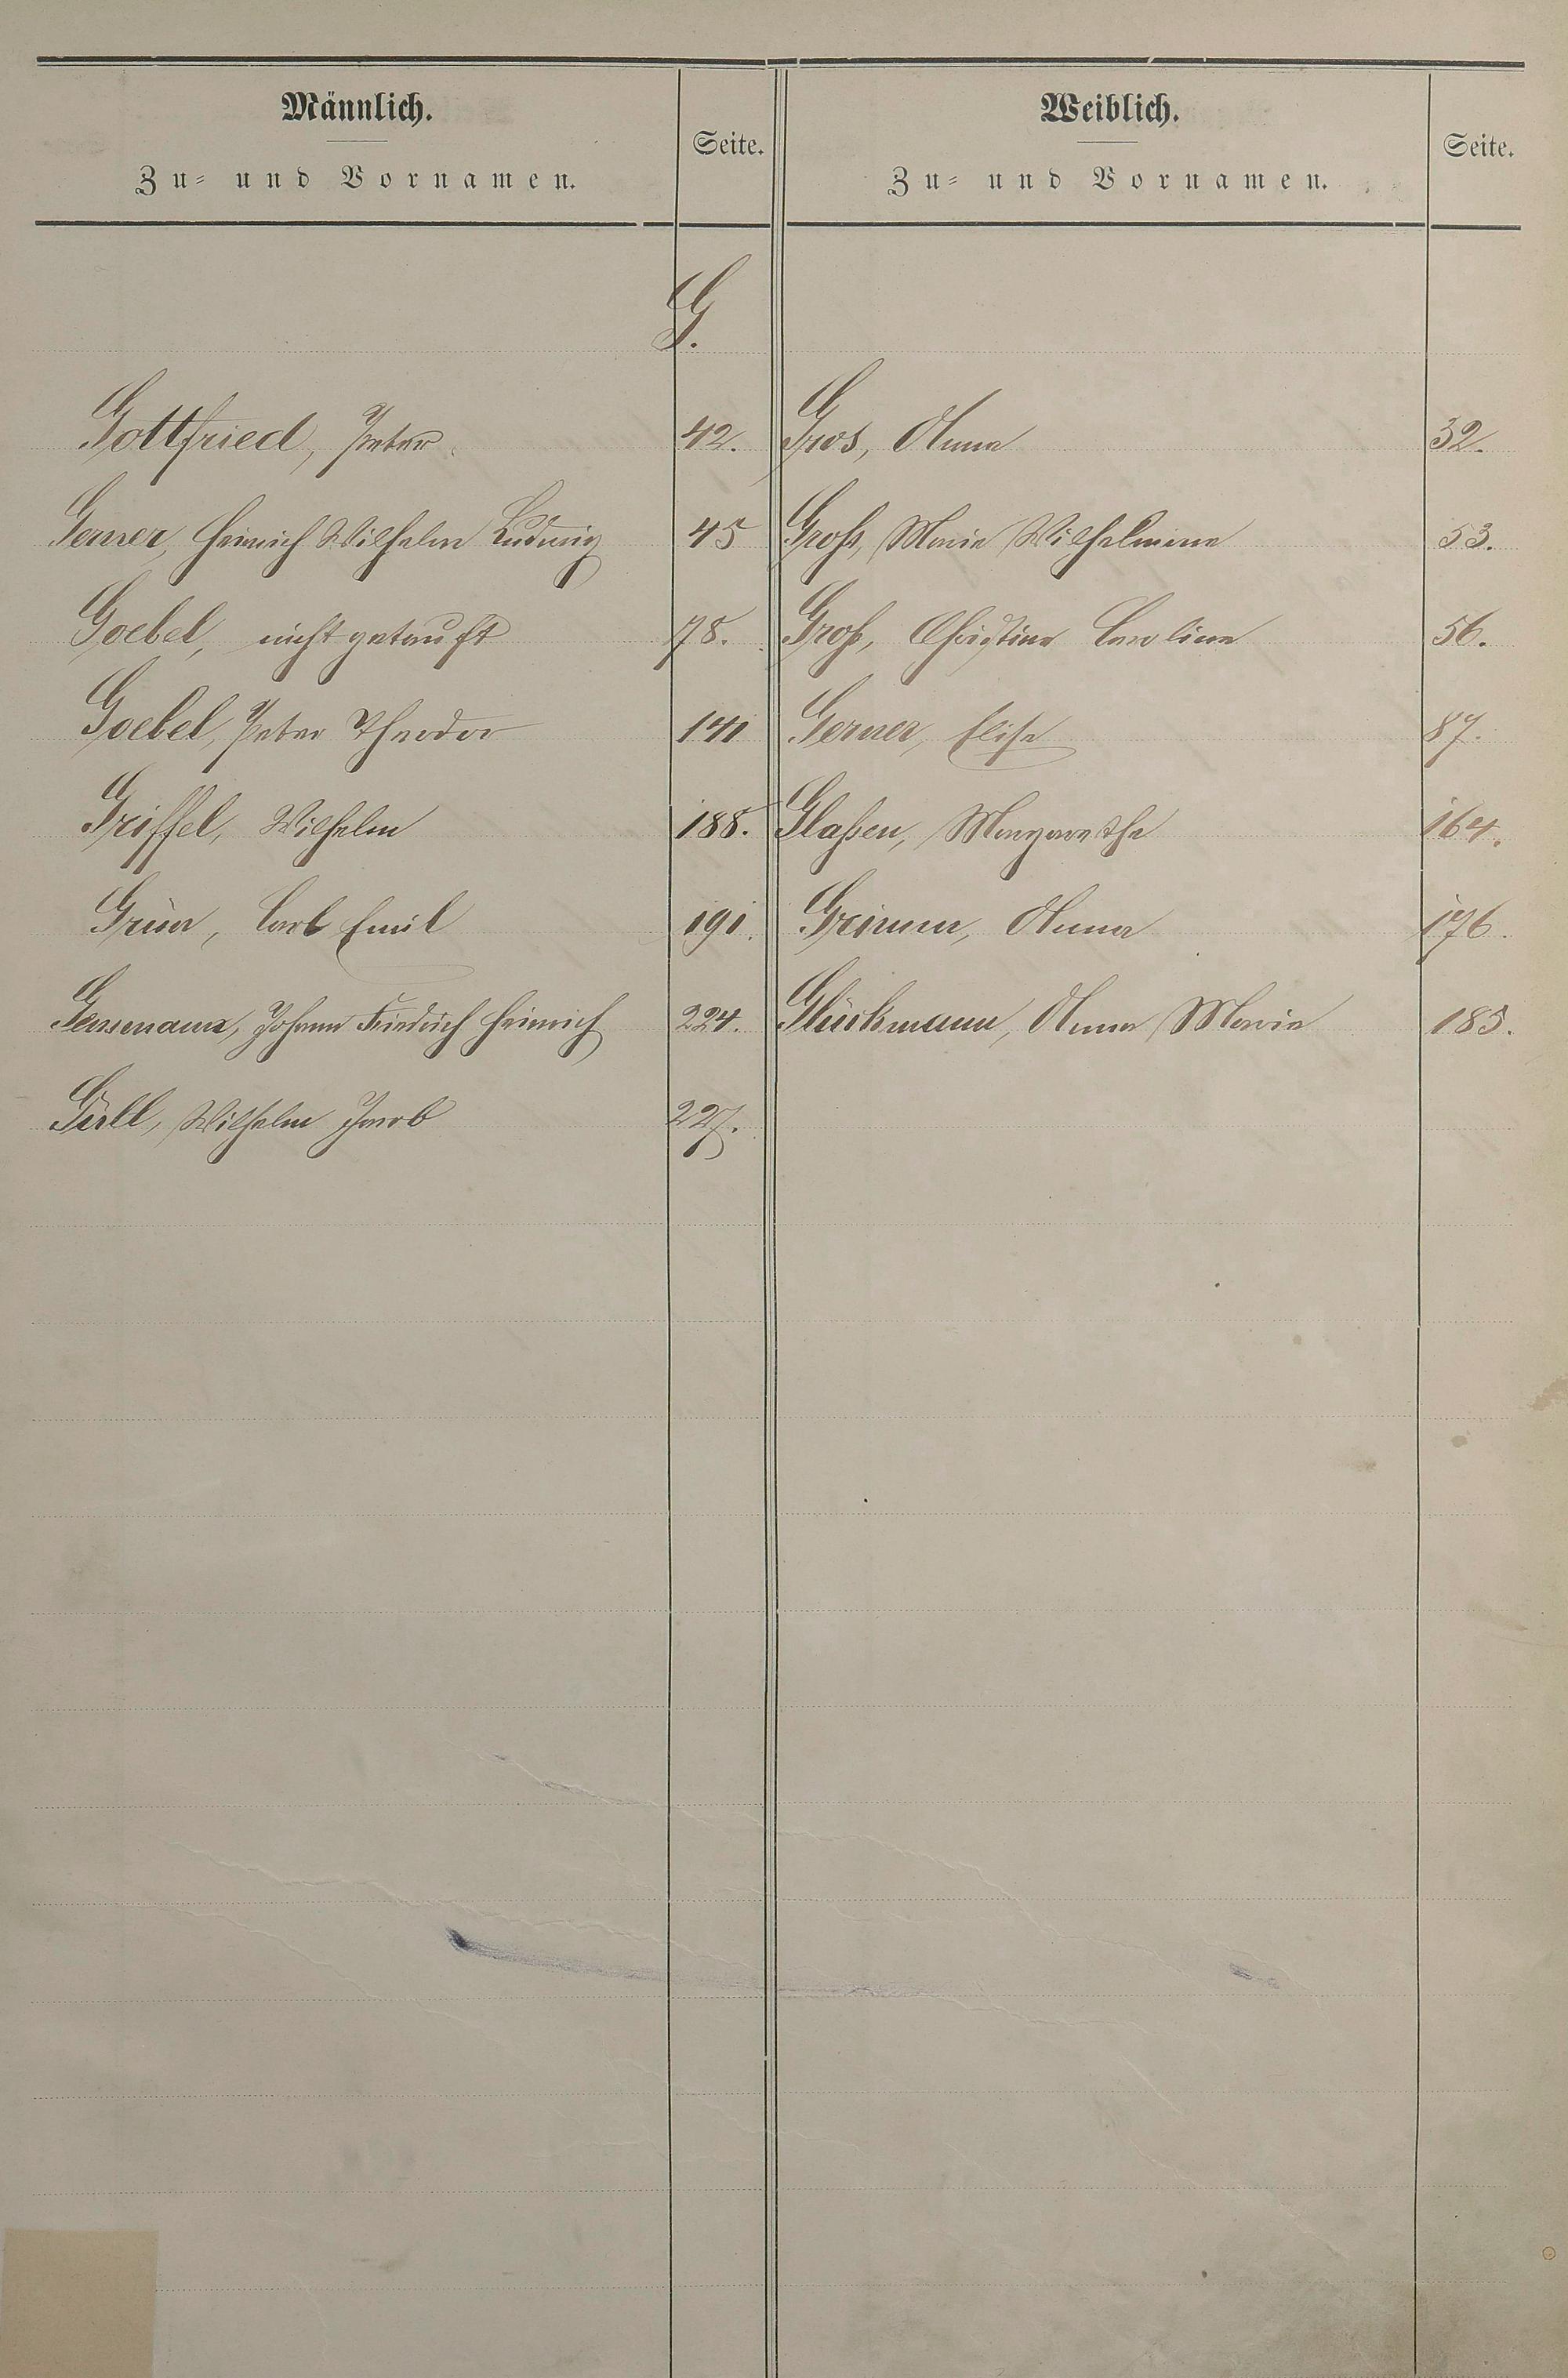 Männlich.
Zu- und Vornamen.
Seite.
Weiblich.
Zu- und Vornamen.
Seite.
G.
Gottfried, Peter 42.
Gerner, Heinrich Wilhelm Ludwig 45
Goebel, nicht getauft 78.
Goebel, Peter Theodor 141
Griffel, Wilhelm 188.
Grün, Carl Emil 191.
Johann Friedrich Heinrich 224.
Güll, Wilhelm Jacob 227.
Gros, Anna 32.
Groß, Marie Wilhelmine 53.
Groß, Christine Caroline 56.
Gerner, Elise 87.
Glaßen, Margarethe 164.
Grimm, Anna 176.
Glückmann, Anna Marie 185.